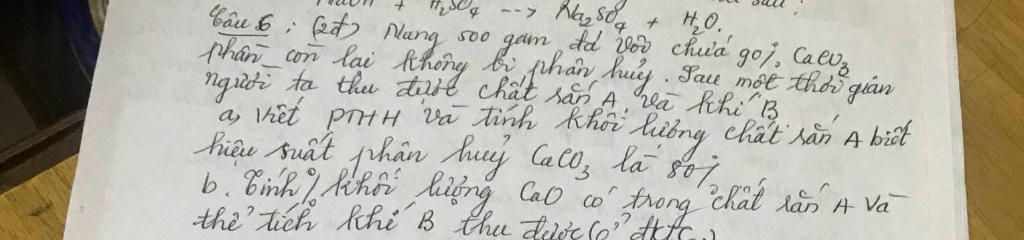 NaOH + H₂SO₄ --> Na₂SO₄ + H₂O.
Câu 6 : (2đ) Nung 500 gam đá vôi chứa 90% CaCO₃
phần còn lại không bị phân huỷ. Sau một thời gian
người ta thu được chất rắn A và khí B
a, Viết PTHH và tính khối lượng chất rắn A biết
hiệu suất phân huỷ CaCO₃ là 80%
b. Tính % khối lượng CaO có trong chất rắn A và
thể tích khí B thu được (ở đktc)